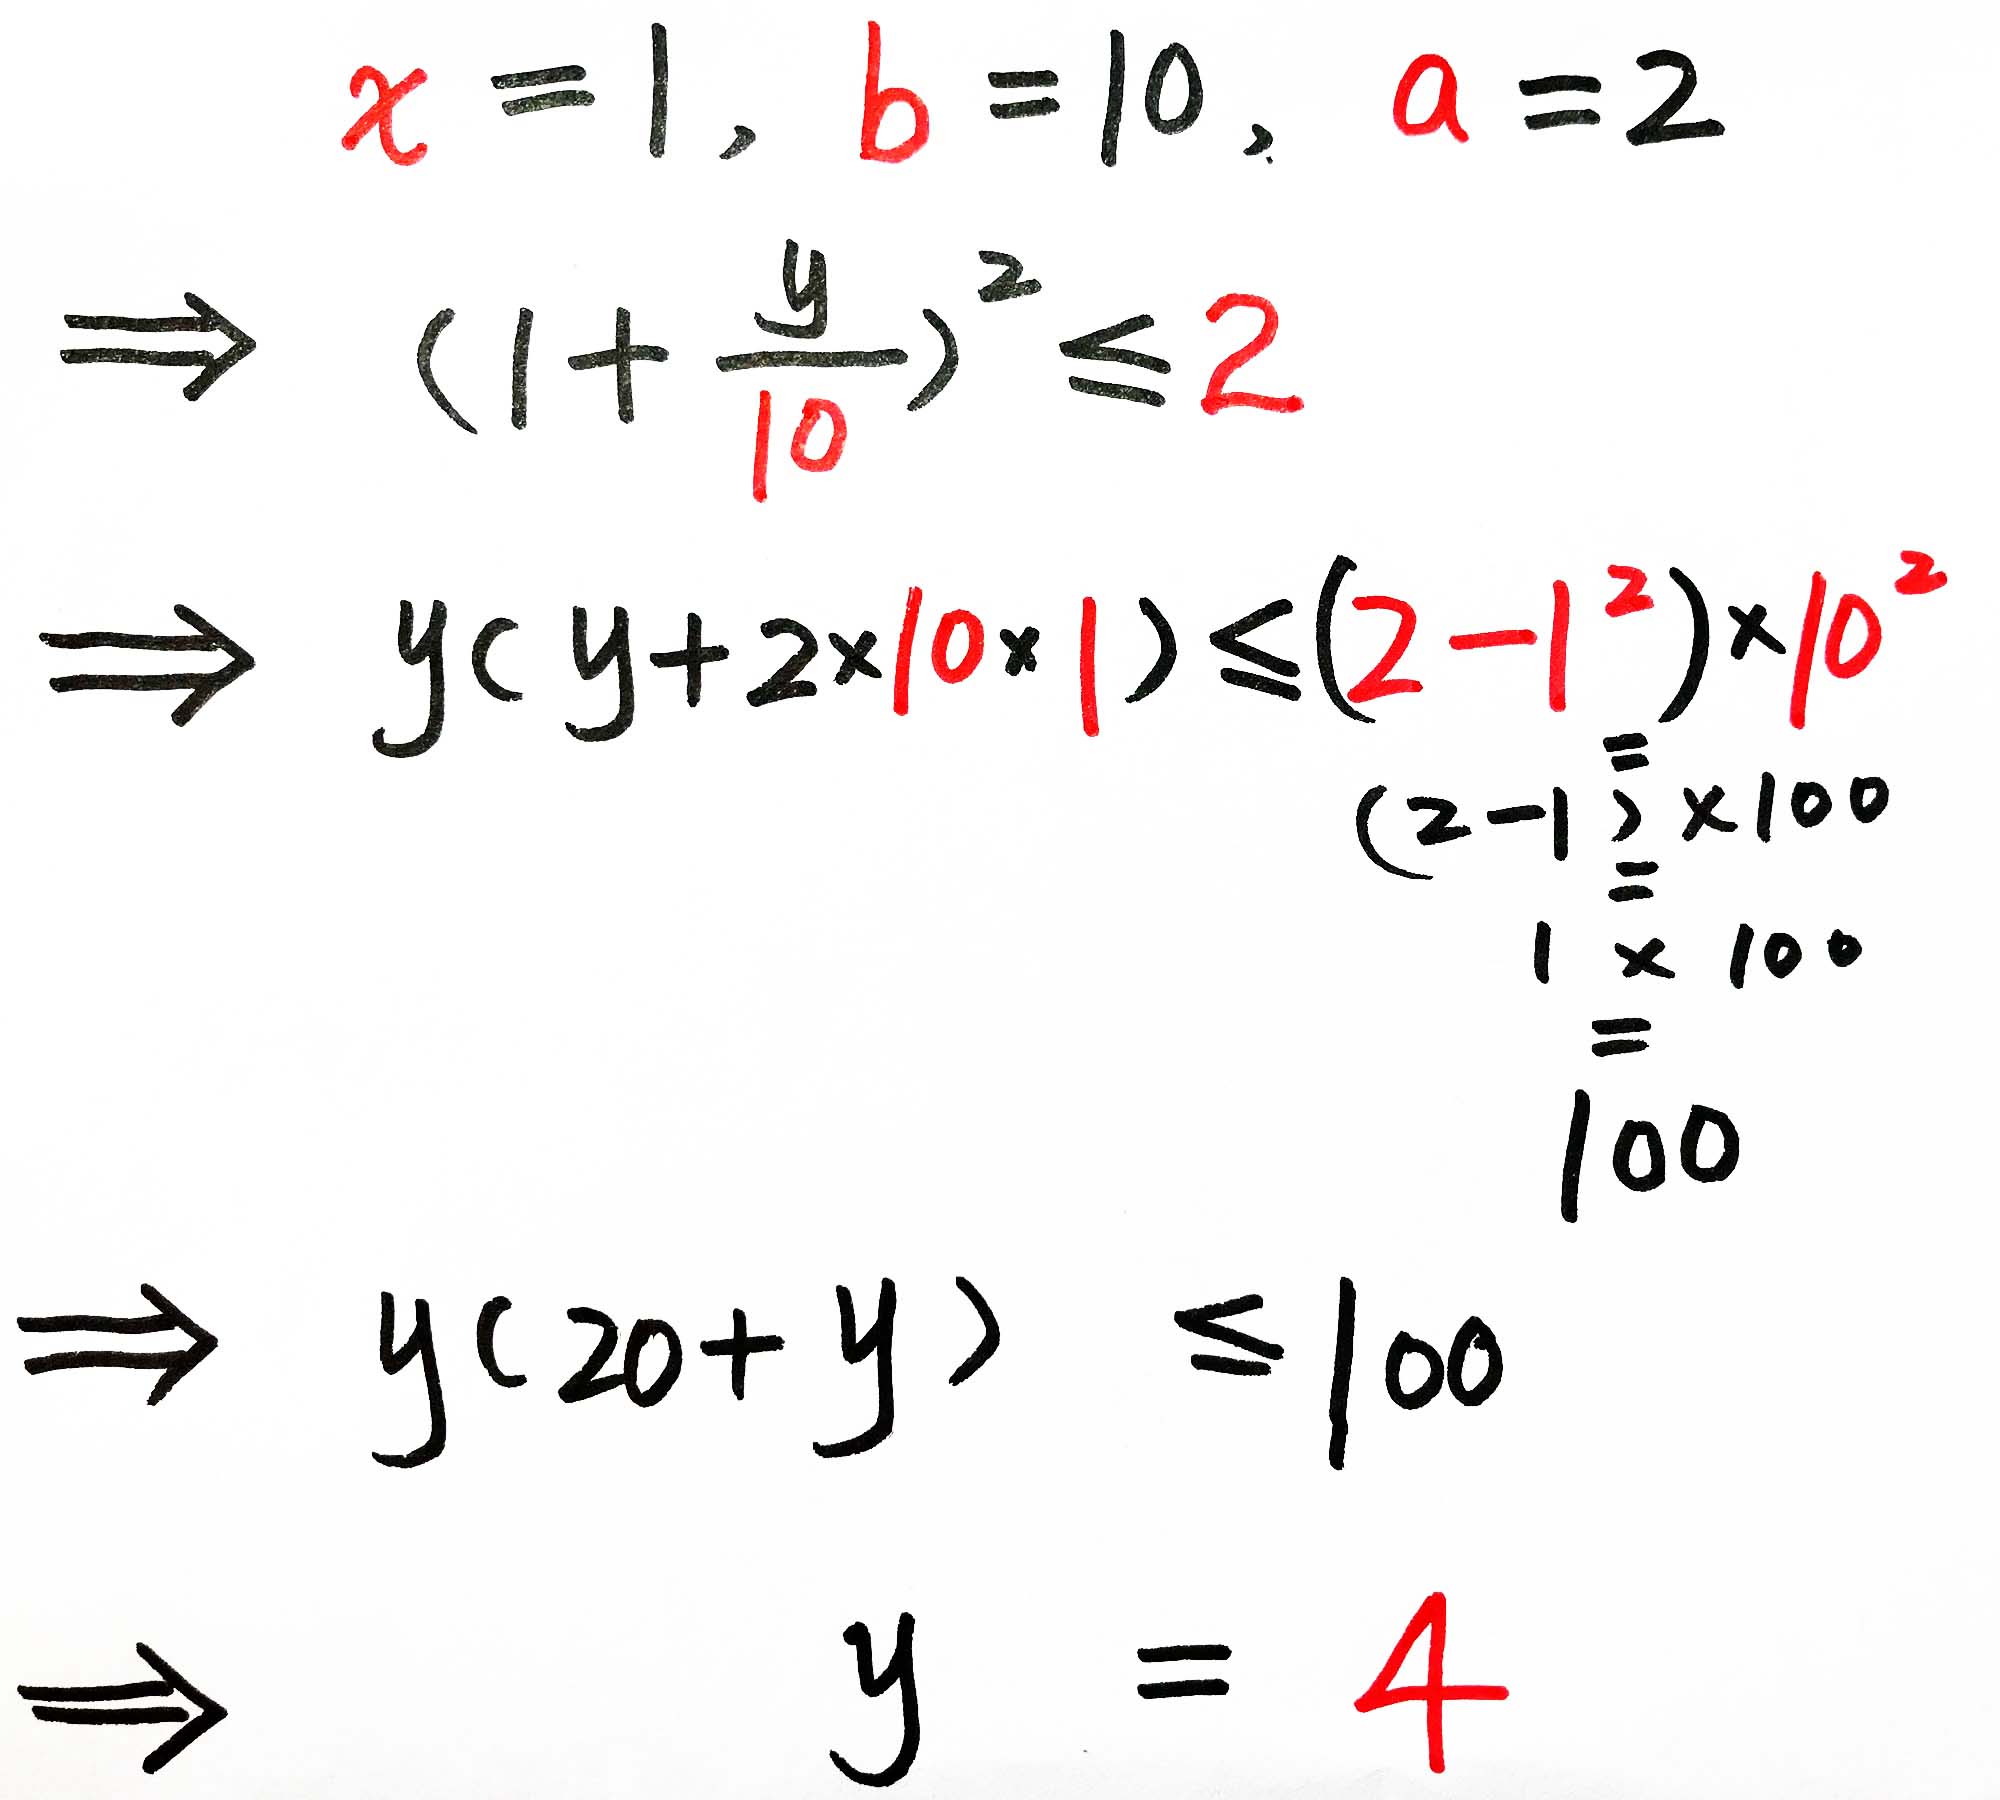 x = 1, b = 10, a = 2
⇒ (1 + y/10)² ≤ 2
⇒ y(y + 2×10×1) ≤ (2 - 1²)×10²
=
(2-1)×100
=
1 × 100
=
100
⇒ y(20 + y) ≤ 100
⇒ y = 4